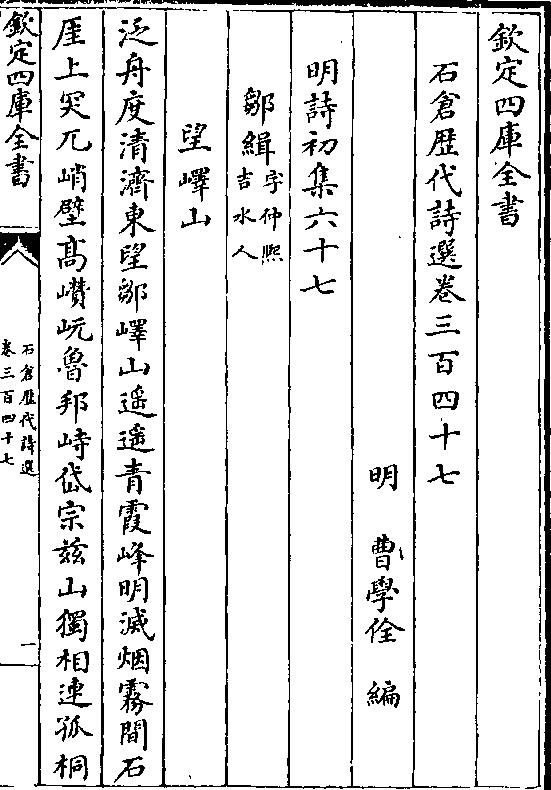 欽定四庫全書
石倉歴代詩選卷三百四十七
明 曹學佺 編
明詩初集六十七
鄒緝字仲熈吉水人
望嶧山
泛舟度清濟東望鄒嶧山遥遥青霞峰明滅烟霧間石
厓上突兀峭壁髙巑岏魯邦峙岱宗兹山獨相連孤桐
欽定四庫全書
石倉歴代詩選
卷三百四十七
一